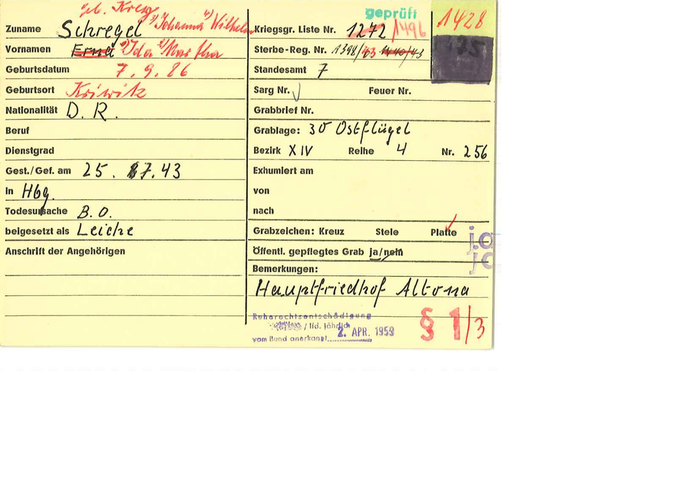 geb. Kreg
geprüft
1428
Zuname Schregel 3) Johanna 4) Wilhelm
Kriegsgr. Liste Nr. 1272/1496
Vornamen Erna 1) Ida 2) Martha
Sterbe-Reg. Nr. 1398/43
Geburtsdatum 7.9.86
Standesamt 7
Geburtsort Kriwitz
Sarg Nr. Feuer Nr.
Nationalität D.R.
Grabbrief Nr.
Beruf
Grablage: 30 Ostflügel
Dienstgrad
Bezirk XIV Reihe 4 Nr. 256
Gest./Gef. am 25. 7.43
Exhumiert am
in Hbg.
von
Todesursache B.O.
nach
beigesetzt als Leiche
Grabzeichen: Kreuz Stele Platte
ja
Anschrift der Angehörigen
Öffentl. gepflegtes Grab ja/nein
ja
Bemerkungen:
Hauptfriedhof Altona
Ruherechtsentschädigung
/ lfd. jährlich
vom Bund anerkannt 2. APR. 1959
§ 1/3